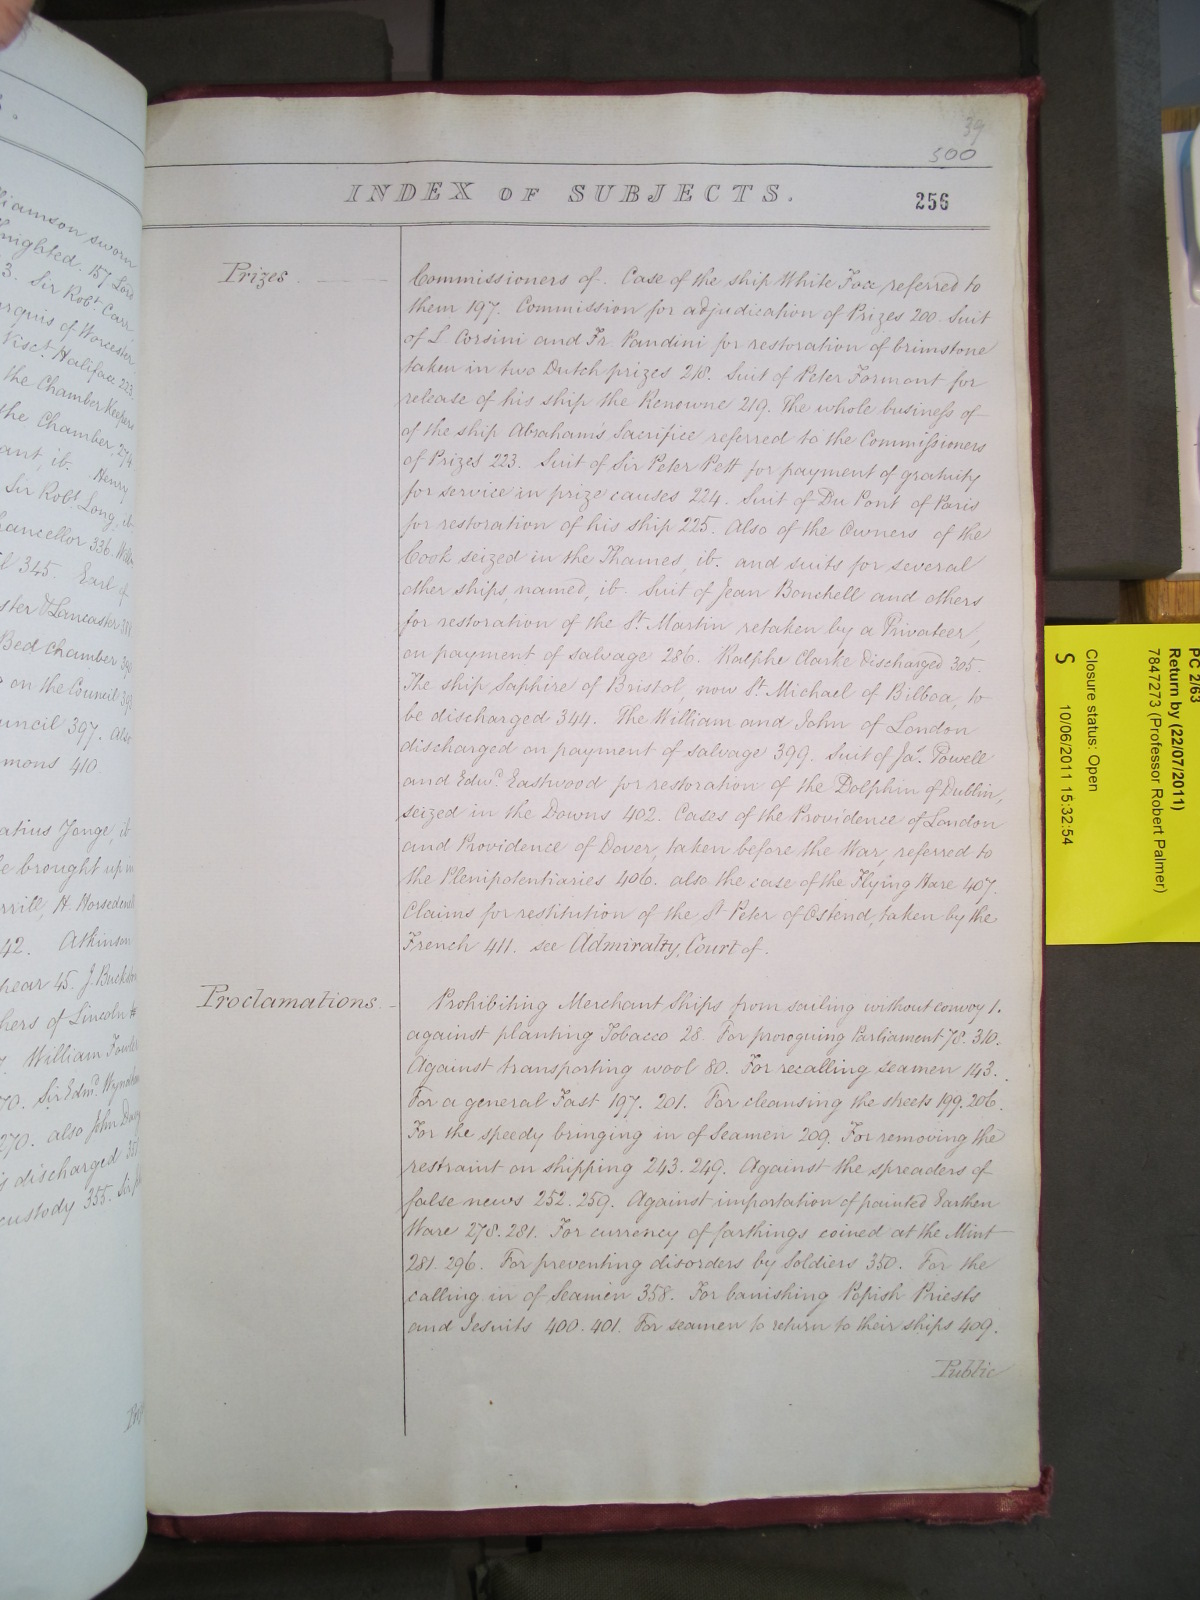 39
500
INDEX OF SUBJECTS.
256
Prizes
Commissioners of. Case of the ship White Face referred to
them 197. Commission for adjudication of Prizes 200. Suit
of L Corsini and Fr Pandini for restoration of brimstone
taken in two Dutch prizes 218. Suit of Peter Formont for
release of his ship the Renowne 219. The whole business of
of the ship Abraham's Sacrifice referred to the Commissioners
of Prizes 223. Suit of Sir Peter Pett for payment of gratuity
for service in prize causes 224. Suit of Du Pont of Paris
for restoration of his ship 225. Also of the Owners of the
Cook seized in the Thames, ib. and suits for several
other ships, named, ib. Suit of Jean Bonchell and others
for restoration of the St. Martin retaken by a Privateer,
on payment of salvage 286. Ralphe Clarke discharged 305.
The ship Saphire of Bristol, now St. Michael of Bilboa, to
be discharged 344. The William and John of London
discharged on payment of salvage 399. Suit of Jas. Powell
and Edwd. Eastwood for restoration of the Dolphin of Dublin,
seized in the Downs 402. Cases of the Providence of London
and Providence of Dover, taken before the War, referred to
the Plenipotentiaries 406. also the case of the Flying Hare 407.
Claims for restitution of the St Peter of Ostend, taken by the
French 411. see Admiralty, Court of.
Proclamations.
Prohibiting Merchant Ships from sailing without convoy 1.
against planting Tobacco 28. For proroguing Parliament 78. 310.
Against transporting wool 80. For recalling seamen 143.
For a general Fast 197. 201. For cleansing the streets 199. 206.
For the speedy bringing in of Seamen 209. For removing the
restraint on shipping 243. 249. Against the spreaders of
false news 252. 259. Against importation of painted Earthen
Ware 278. 281. For currency of farthings coined at the Mint
281. 296. For preventing disorders by Soldiers 350. For the
calling in of Seamen 358. For banishing Popish Priests
and Jesuits 400. 401. For seamen to return to their ships 409.
Public
PC 2/63
Return by (22/07/2011)
7847273 (Professor Robert Palmer)
Closure status: Open
S 10/06/2011 15:32:54
sworn
knighted. 157 Lord
3. Sir Robt. Carr
Marquis of Worcester
Visct. Halifax 223.
the Chamber Keepers
the Chamber 274
ant, ib. Henry
Sir Robt. Long, ib
hancellor 336.
il 345. Earl of
ster & Lancaster
Bed Chamber
on the Council
uncil 397. also
mons 410.
atius Jonge, ib
be brought up in
42. Atkinson
hear 45.
hers of Lincoln
William
70. Sir Edmd. Wyndham
270. also John
is discharged
custody 355. Sir